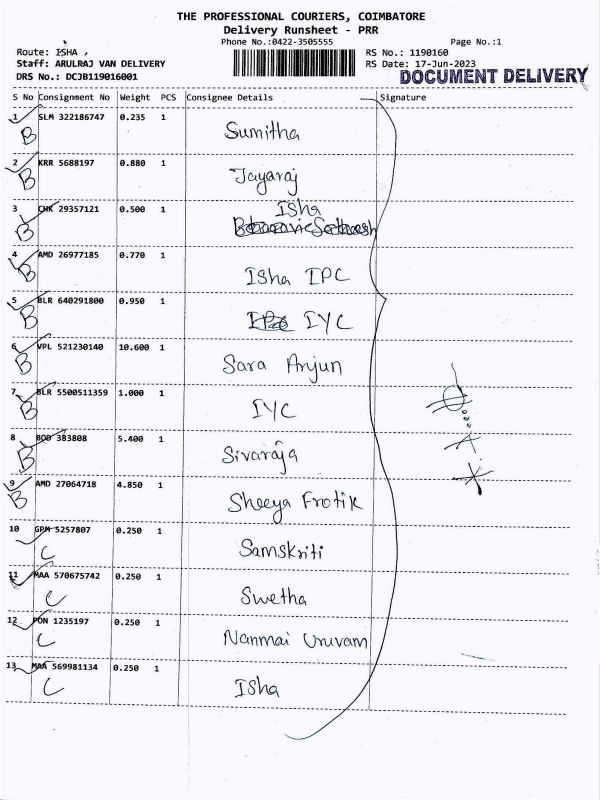 THE PROFESSIONAL COURIERS, COIMBATORE
Delivery Runsheet - PRR
Phone No.:0422-3505555 Page No.:1
Route: ISHA RS No.: 1190160
Staff: ARULRAJ VAN DELIVERY RS Date: 17-Jun-2023
DRS No.: DCJB119016001 DOCUMENT DELIVERY
S No Consignment No Weight PCS Consignee Details Signature
1 SLM 322186747 0.235 1
B Sumitha
2 KRR 5688197 0.880 1
B Jayaraj
3 CHK 29357121 0.500 1 Isha
B
4 AMD 26977185 0.770 1
B Isha IPC
5 BLR 640291800 0.950 1
B IYC
6 VPL 521230140 10.600 1
B Sara Anjun
7 BLR 5500511359 1.000 1
B IYC
8 BOD 383808 5.400 1
B Sivaraja
9 AMD 27064718 4.850 1
B Sheeya Frotik
10 GPM 5257807 0.250 1
C Samskriti
11 MAA 570675742 0.250 1
C Swetha
12 PON 1235197 0.250 1
C Nanmai Uruvam
13 MAA 569981134 0.250 1
C Isha